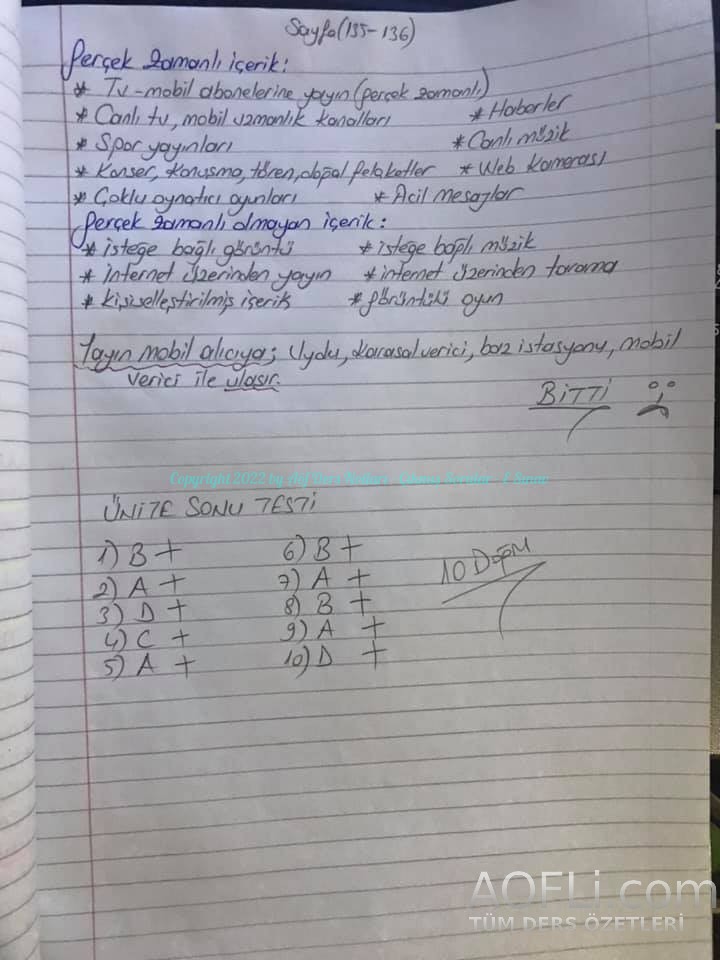 Sayfa (135-136)
Gerçek zamanlı içerik:
* Tv-mobil abonelerine yayın (gerçek zamanlı)
* Canlı tv, mobil uzmanlık kanalları * Haberler
* Spor yayınları * Canlı müzik
* Konser, konuşma, tören, doğal felaketler * Web kamerası
* Çoklu oynatıcı oyunları * Acil mesajlar
Gerçek zamanlı olmayan içerik:
* isteğe bağlı görüntü * isteğe bağlı müzik
* internet üzerinden yayın * internet üzerinden tarama
* kişiselleştirilmiş içerik * görüntülü oyun
Yayın mobil alıcıya; Uydu, karasal verici, baz istasyonu, mobil
verici ile ulaşır.
BİTTİ
Copyright 2022 by
ÜNİTE SONU TESTİ
1) B + 6) B +
2) A + 7) A +
3) D + 8) B +
4) C + 9) A +
5) A + 10) D +
10 Doğru
AOFLi.com
TÜM DERS ÖZETLERİ